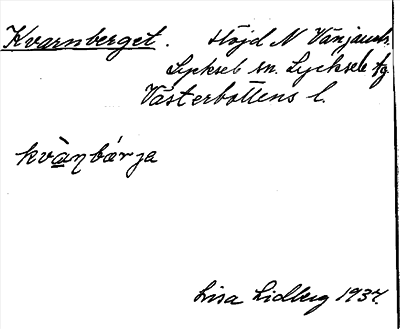 Kvarnberget. Höjd N Vänjaurb.
Lycksele sn. Lycksele tg
Västerbottens l.
kvànbárja
Lisa Lidberg 1937.